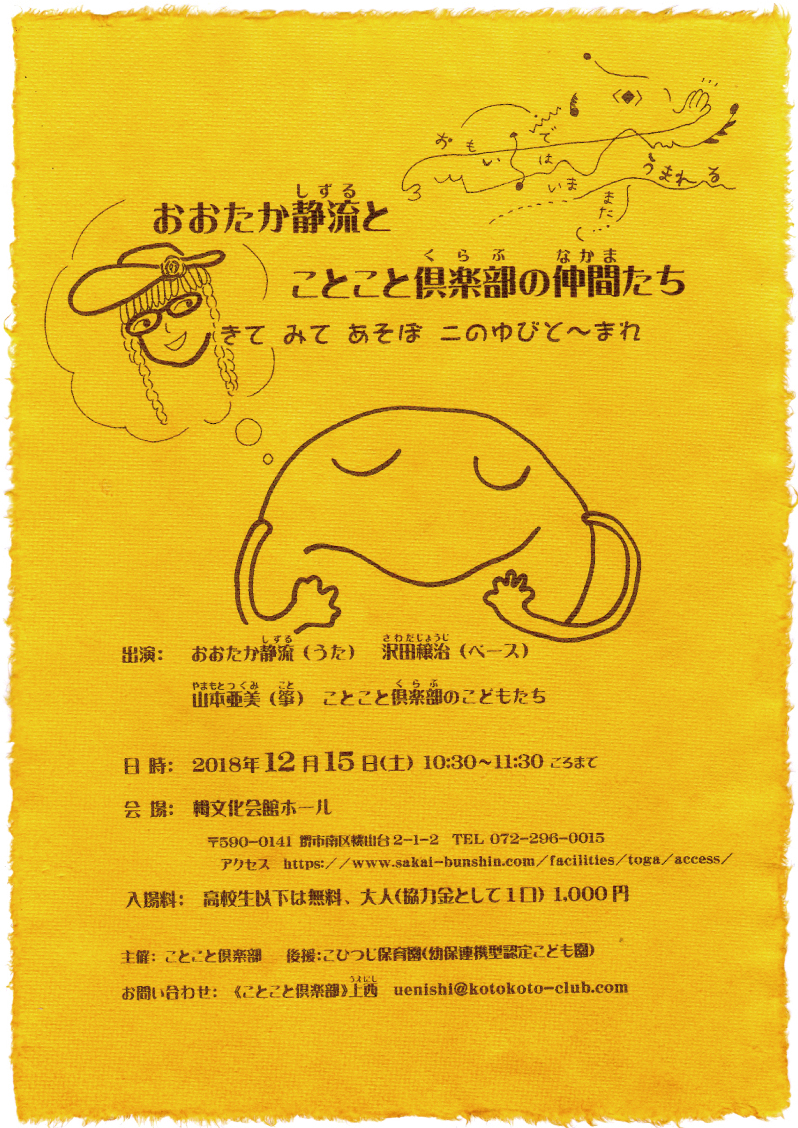 おもいではいままたうまれる
しずる
おおたか静流と
くらぶ なかま
ことこと倶楽部の仲間たち
きて みて あそぼ 二のゆびと〜まれ
しずる さわだじょうじ
出演: おおたか静流(うた) 沢田穣治(ベース)
やまもとつぐみ こと くらぶ
山本亜美(箏) ことこと倶楽部のこどもたち
日 時: 2018年12月15日(土) 10:30〜11:30 ころまで
会 場: 栂文化会館ホール
〒590-0141 堺市南区桃山台2-1-2 TEL 072-296-0015
アクセス https://www.sakai-bunshin.com/facilities/toga/access/
入場料: 高校生以下は無料、大人(協力金として1口) 1,000円
主催: ことこと倶楽部 後援:こひつじ保育園(幼保連携型認定こども園)
うえにし
お問い合わせ: 《ことこと倶楽部》上西 uenishi@kotokoto-club.com